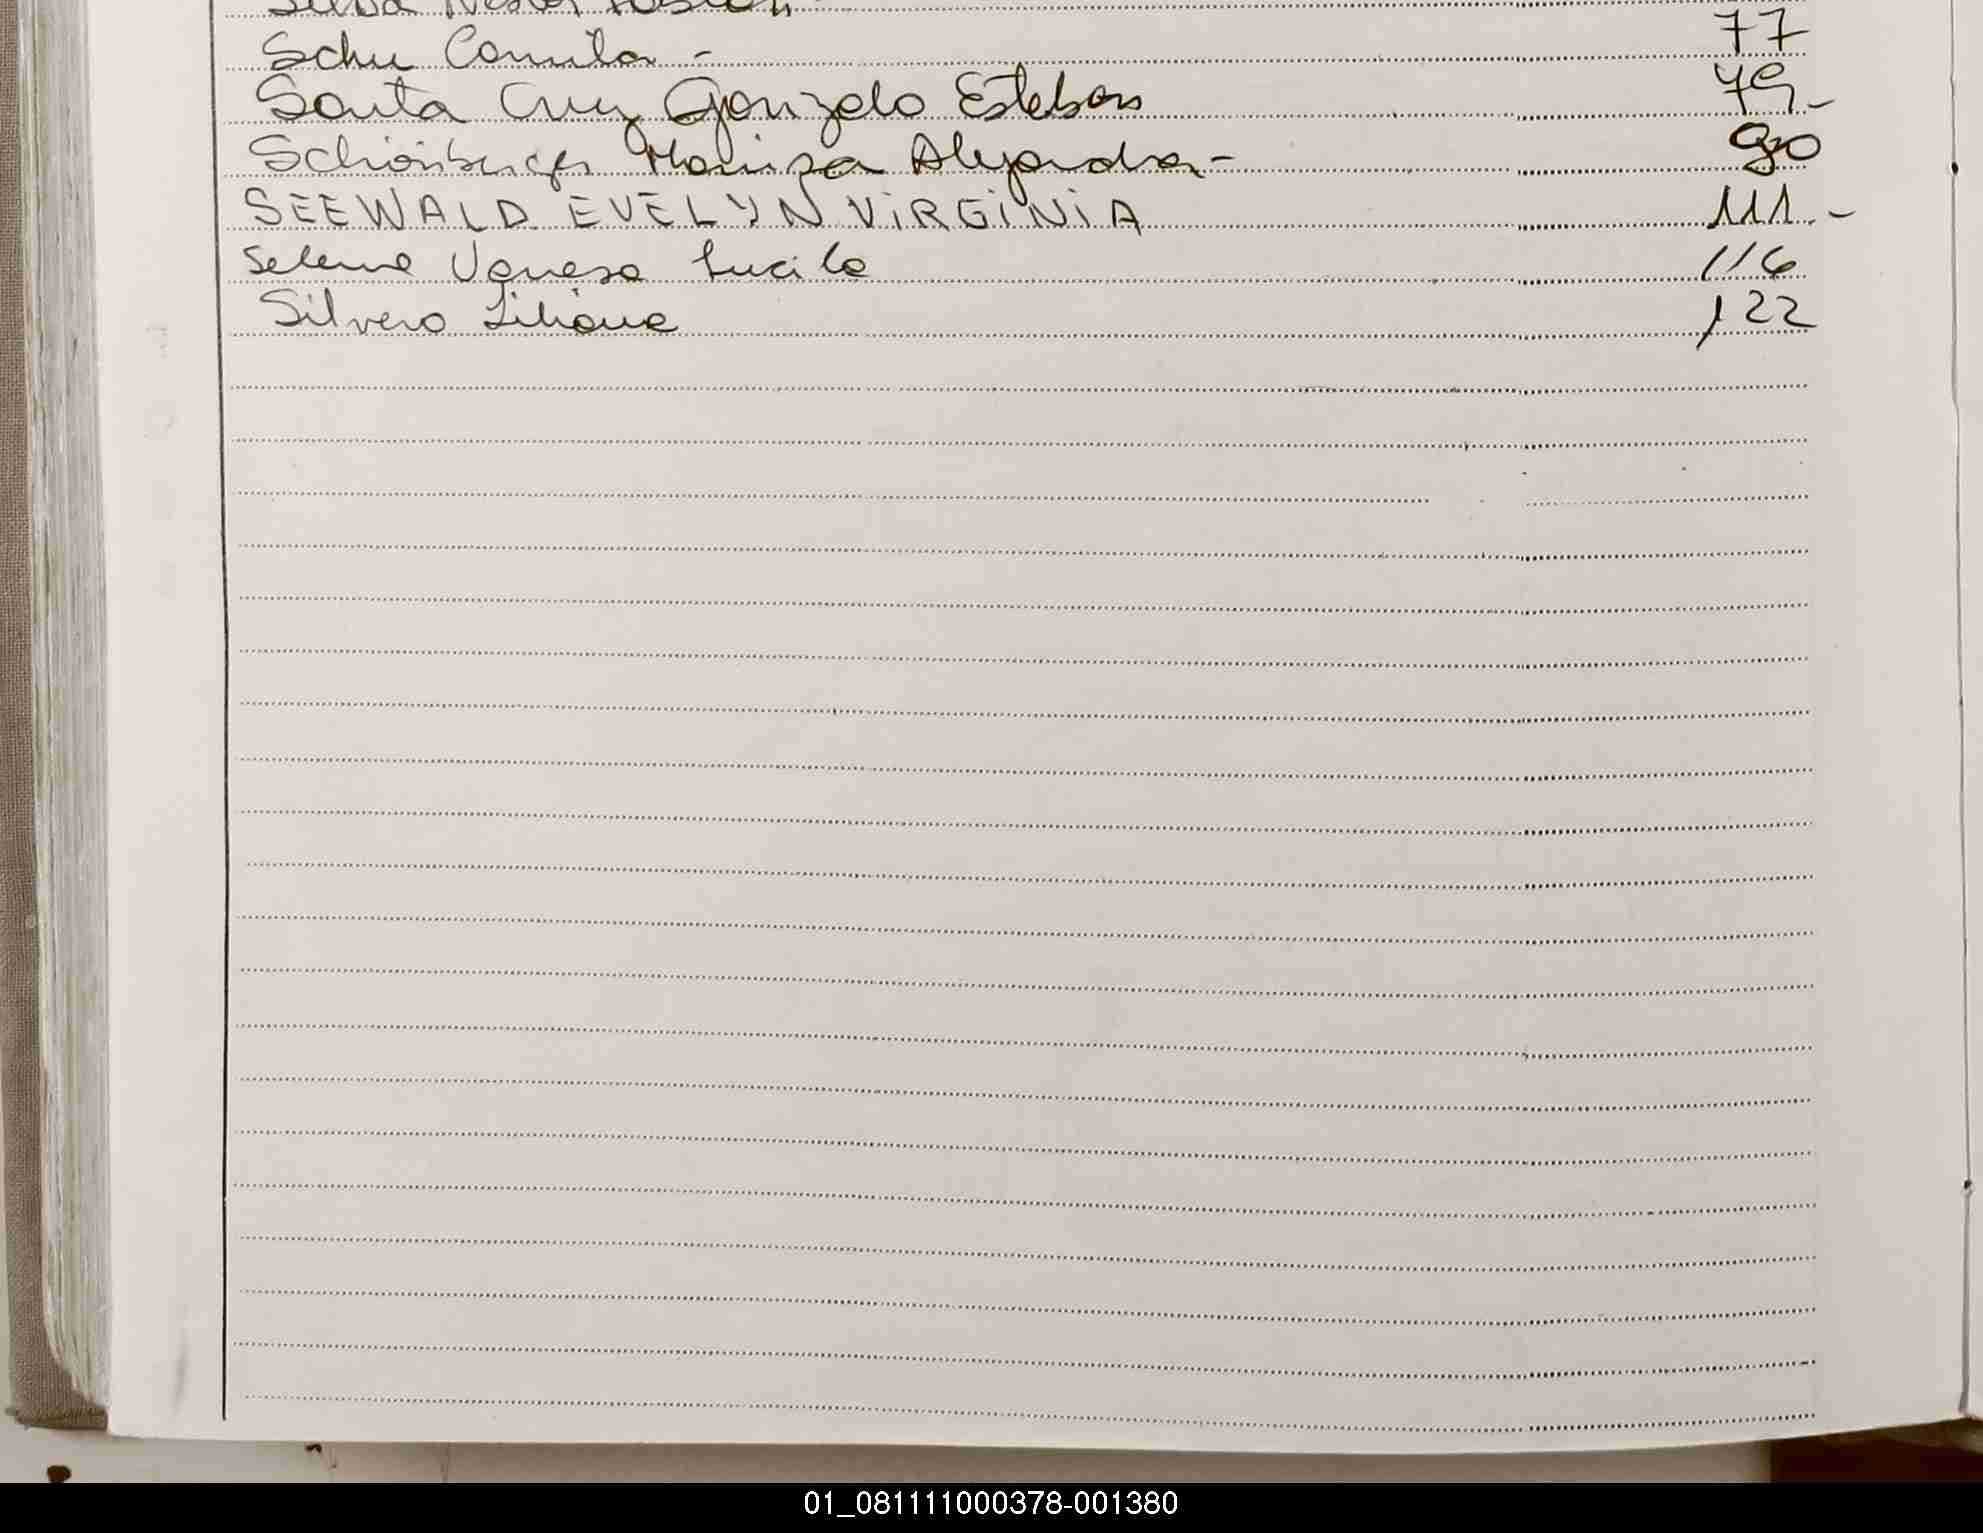 Silva Nestor Fabian
Schu Camila - 77
Santa Cruz Gonzalo Esteban 79-
Schönberger Marisa Alejandra - 90
SEEWALD EVELYN VIRGINIA 111.-
Selene Vanesa Lucila 116
Silvero Liliana 122
01_081111000378-001380